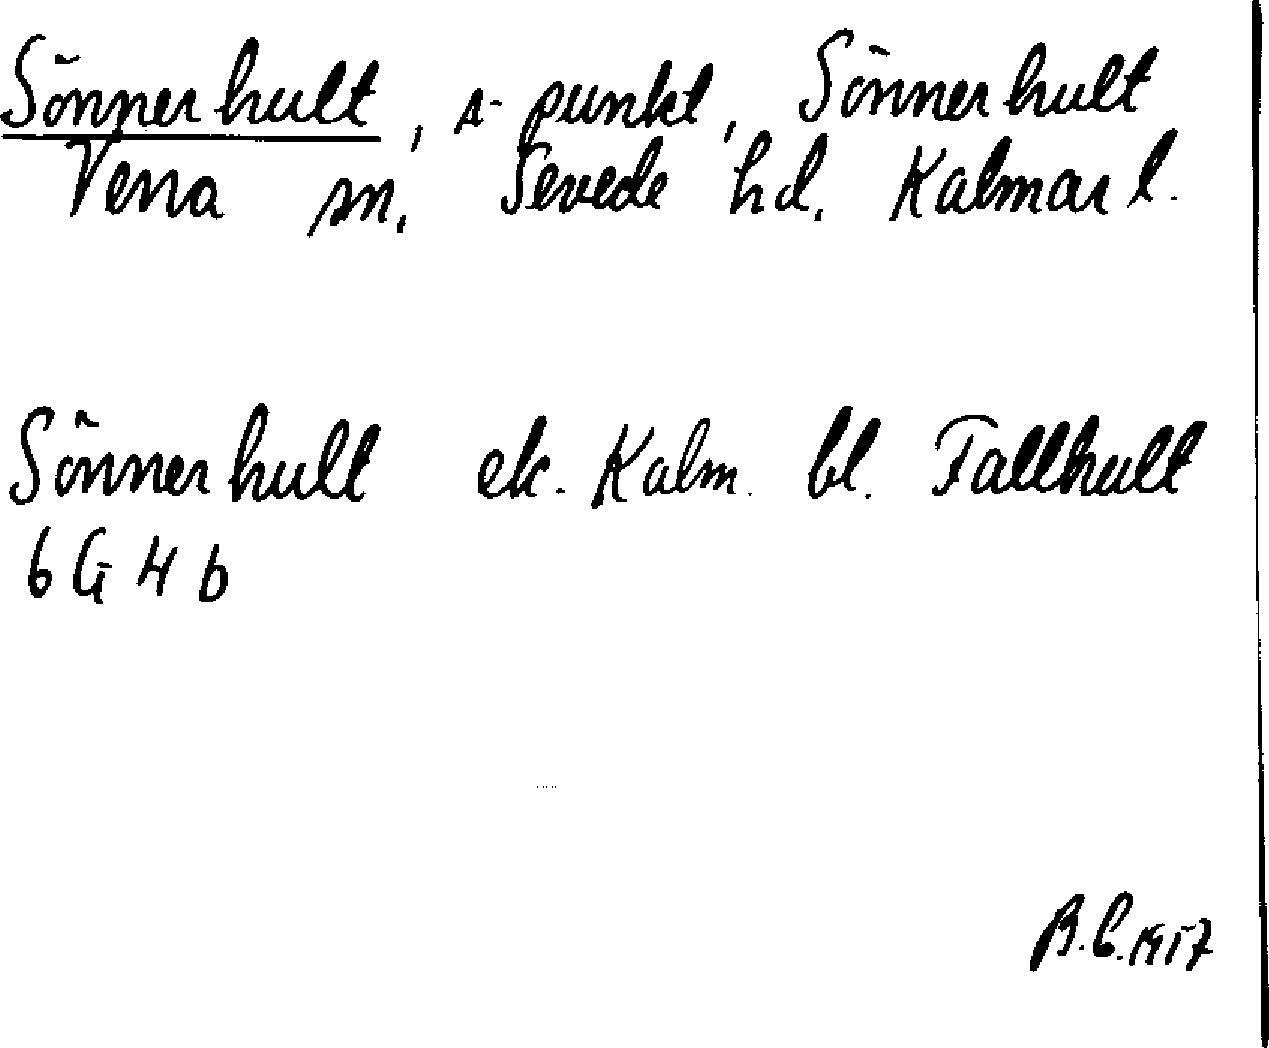 Sönnerhult, s-punkt, Sönnerhult
Vena sn, Sevede hd, Kalmar l.
Sönnerhult ek. Kalm. bl. Fallhult
6G 4b
B.C. 1957